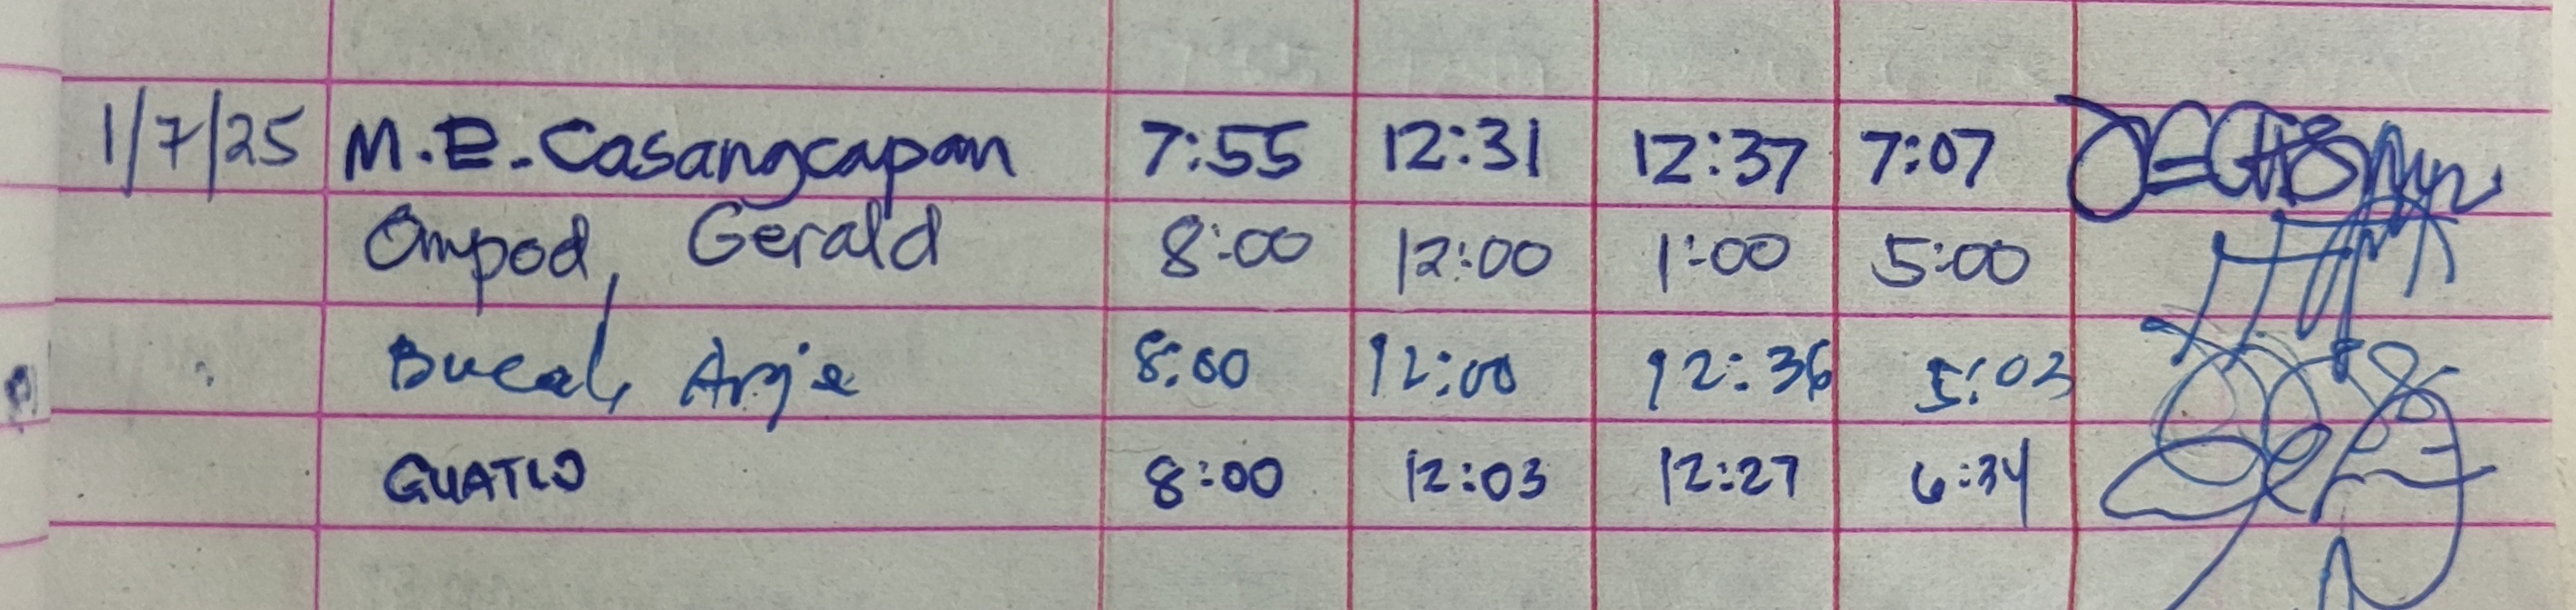 1/7/25 M.E. Casangcapan 7:55 12:31 12:37 7:07
Ompod, Gerald 8:00 12:00 1:00 5:00
Bucal, Argie 8:00 12:00 12:36 5:03
GUATLO 8:00 12:03 12:27 6:34